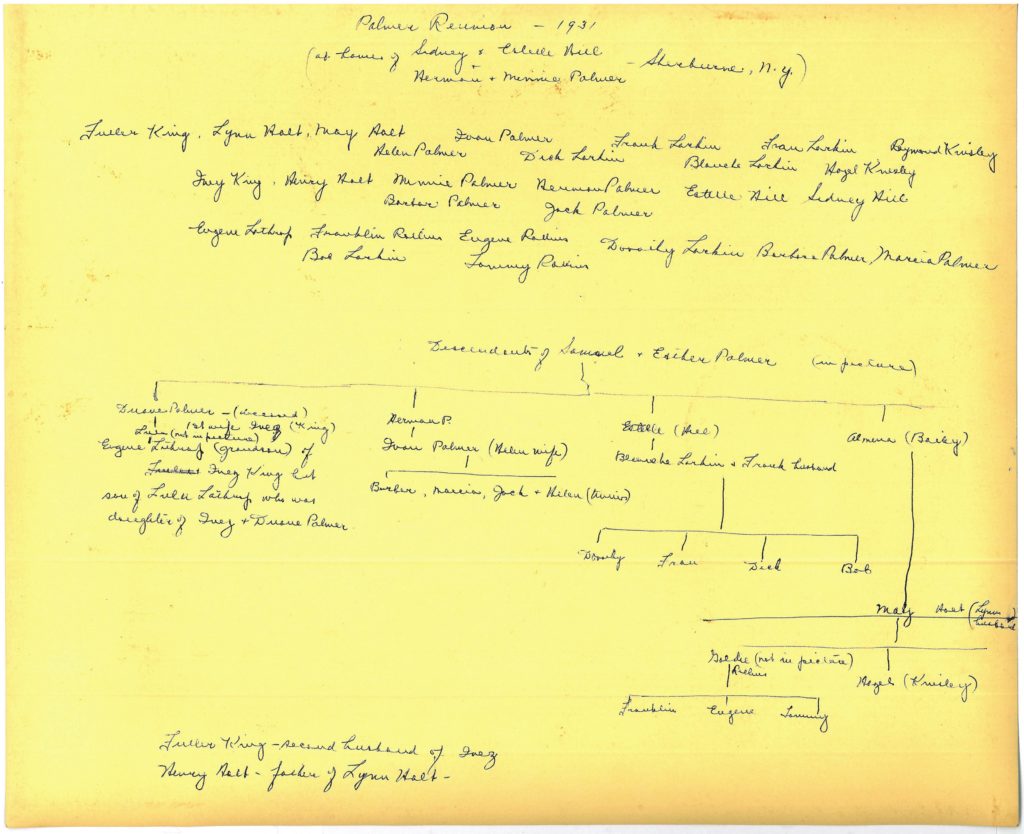 Palmer Reunion - 1931
(at home of Sidney + Estelle Hill
+
Herman + Minnie Palmer
- Sherburne, N.Y.)
Fuller King, Lynn Holt, May Holt Ivan Palmer Frank Larkin Fran Larkin Raymond Kinsley
Helen Palmer Dick Larkin Blanche Larkin Hazel Kinsley
Inez King, Henry Holt Minnie Palmer Herman Palmer Estelle Hill Sidney Hill
Barbar Palmer Jack Palmer
Eugene Lathrop Franklin Rollins Eugene Rollins Dorothy Larkin Barbara Palmer, Marcia Palmer
Bob Larkin Tommy Rollins
Descendents of Samuel + Esther Palmer (in picture)
Duane Palmer - (deceased)
1st wife Inez (King)
Lulu (not in picture)
Eugene Lathrop (grandson) of
Inez King but
son of Lulu Lathrop who was
daughter of Inez + Duane Palmer
Herman P.
Ivan Palmer (Helen wife)
Barbar, Marcia, Jack + Helen (twins)
Estelle (Hill)
Blanche Larkin + Frank husband
Dorothy Fran Dick Bob
Almena (Bailey)
May Holt (Lynn husband)
Goldie (not in picture)
Rollins
Hazel (Kinsley)
Franklin Eugene Tommy
Fuller King - second husband of Inez
Henry Holt - father of Lynn Holt -